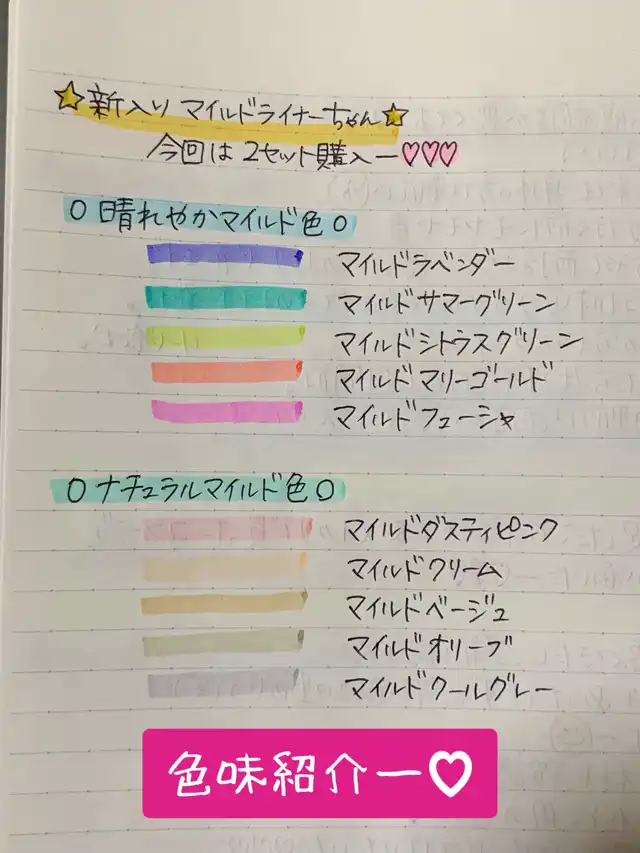 ☆新入り マイルドライナーちゃん☆
今回は 2セット購入ー♡♡♡
○晴れやかマイルド色○
マイルドラベンダー
マイルドサマーグリーン
マイルドシトラスグリーン
マイルドマリーゴールド
マイルドフューシャ
○ナチュラルマイルド色○
マイルドダスティピンク
マイルドクリーム
マイルドベージュ
マイルドオリーブ
マイルドクールグレー
色味紹介ー♡